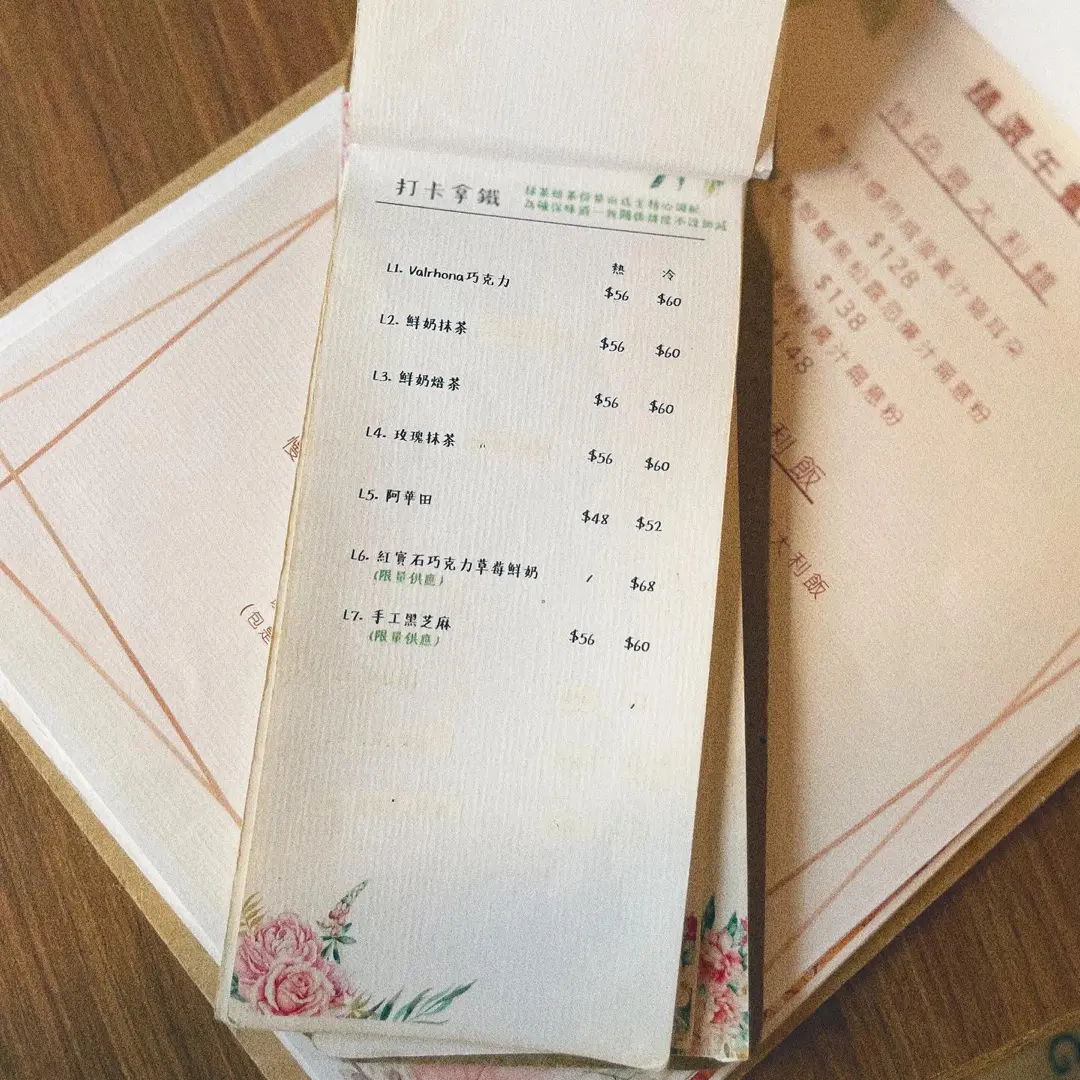 打卡拿鐵
抹茶焙茶份量由店主精心調配
為確保味道一致關係請恕不設加減
熱 冷
L1. Valrhona巧克力 $56 $60
L2. 鮮奶抹茶 $56 $60
L3. 鮮奶焙茶 $56 $60
L4. 玫瑰抹茶 $56 $60
L5. 阿華田 $48 $52
L6. 紅寶石巧克力草莓鮮奶 / $68
(限量供應)
L7. 手工黑芝麻 $56 $60
(限量供應)
(包是
精選午
特色意大利麵
$128
$138
148
利飯
大利飯